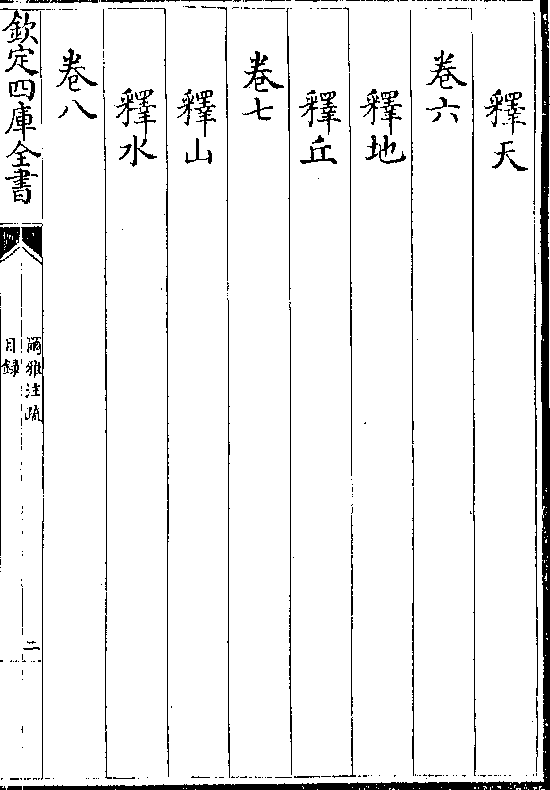 釋天
卷六
釋地
釋丘
卷七
釋山
釋水
卷八
欽定四庫全書
爾雅注疏
目錄
二